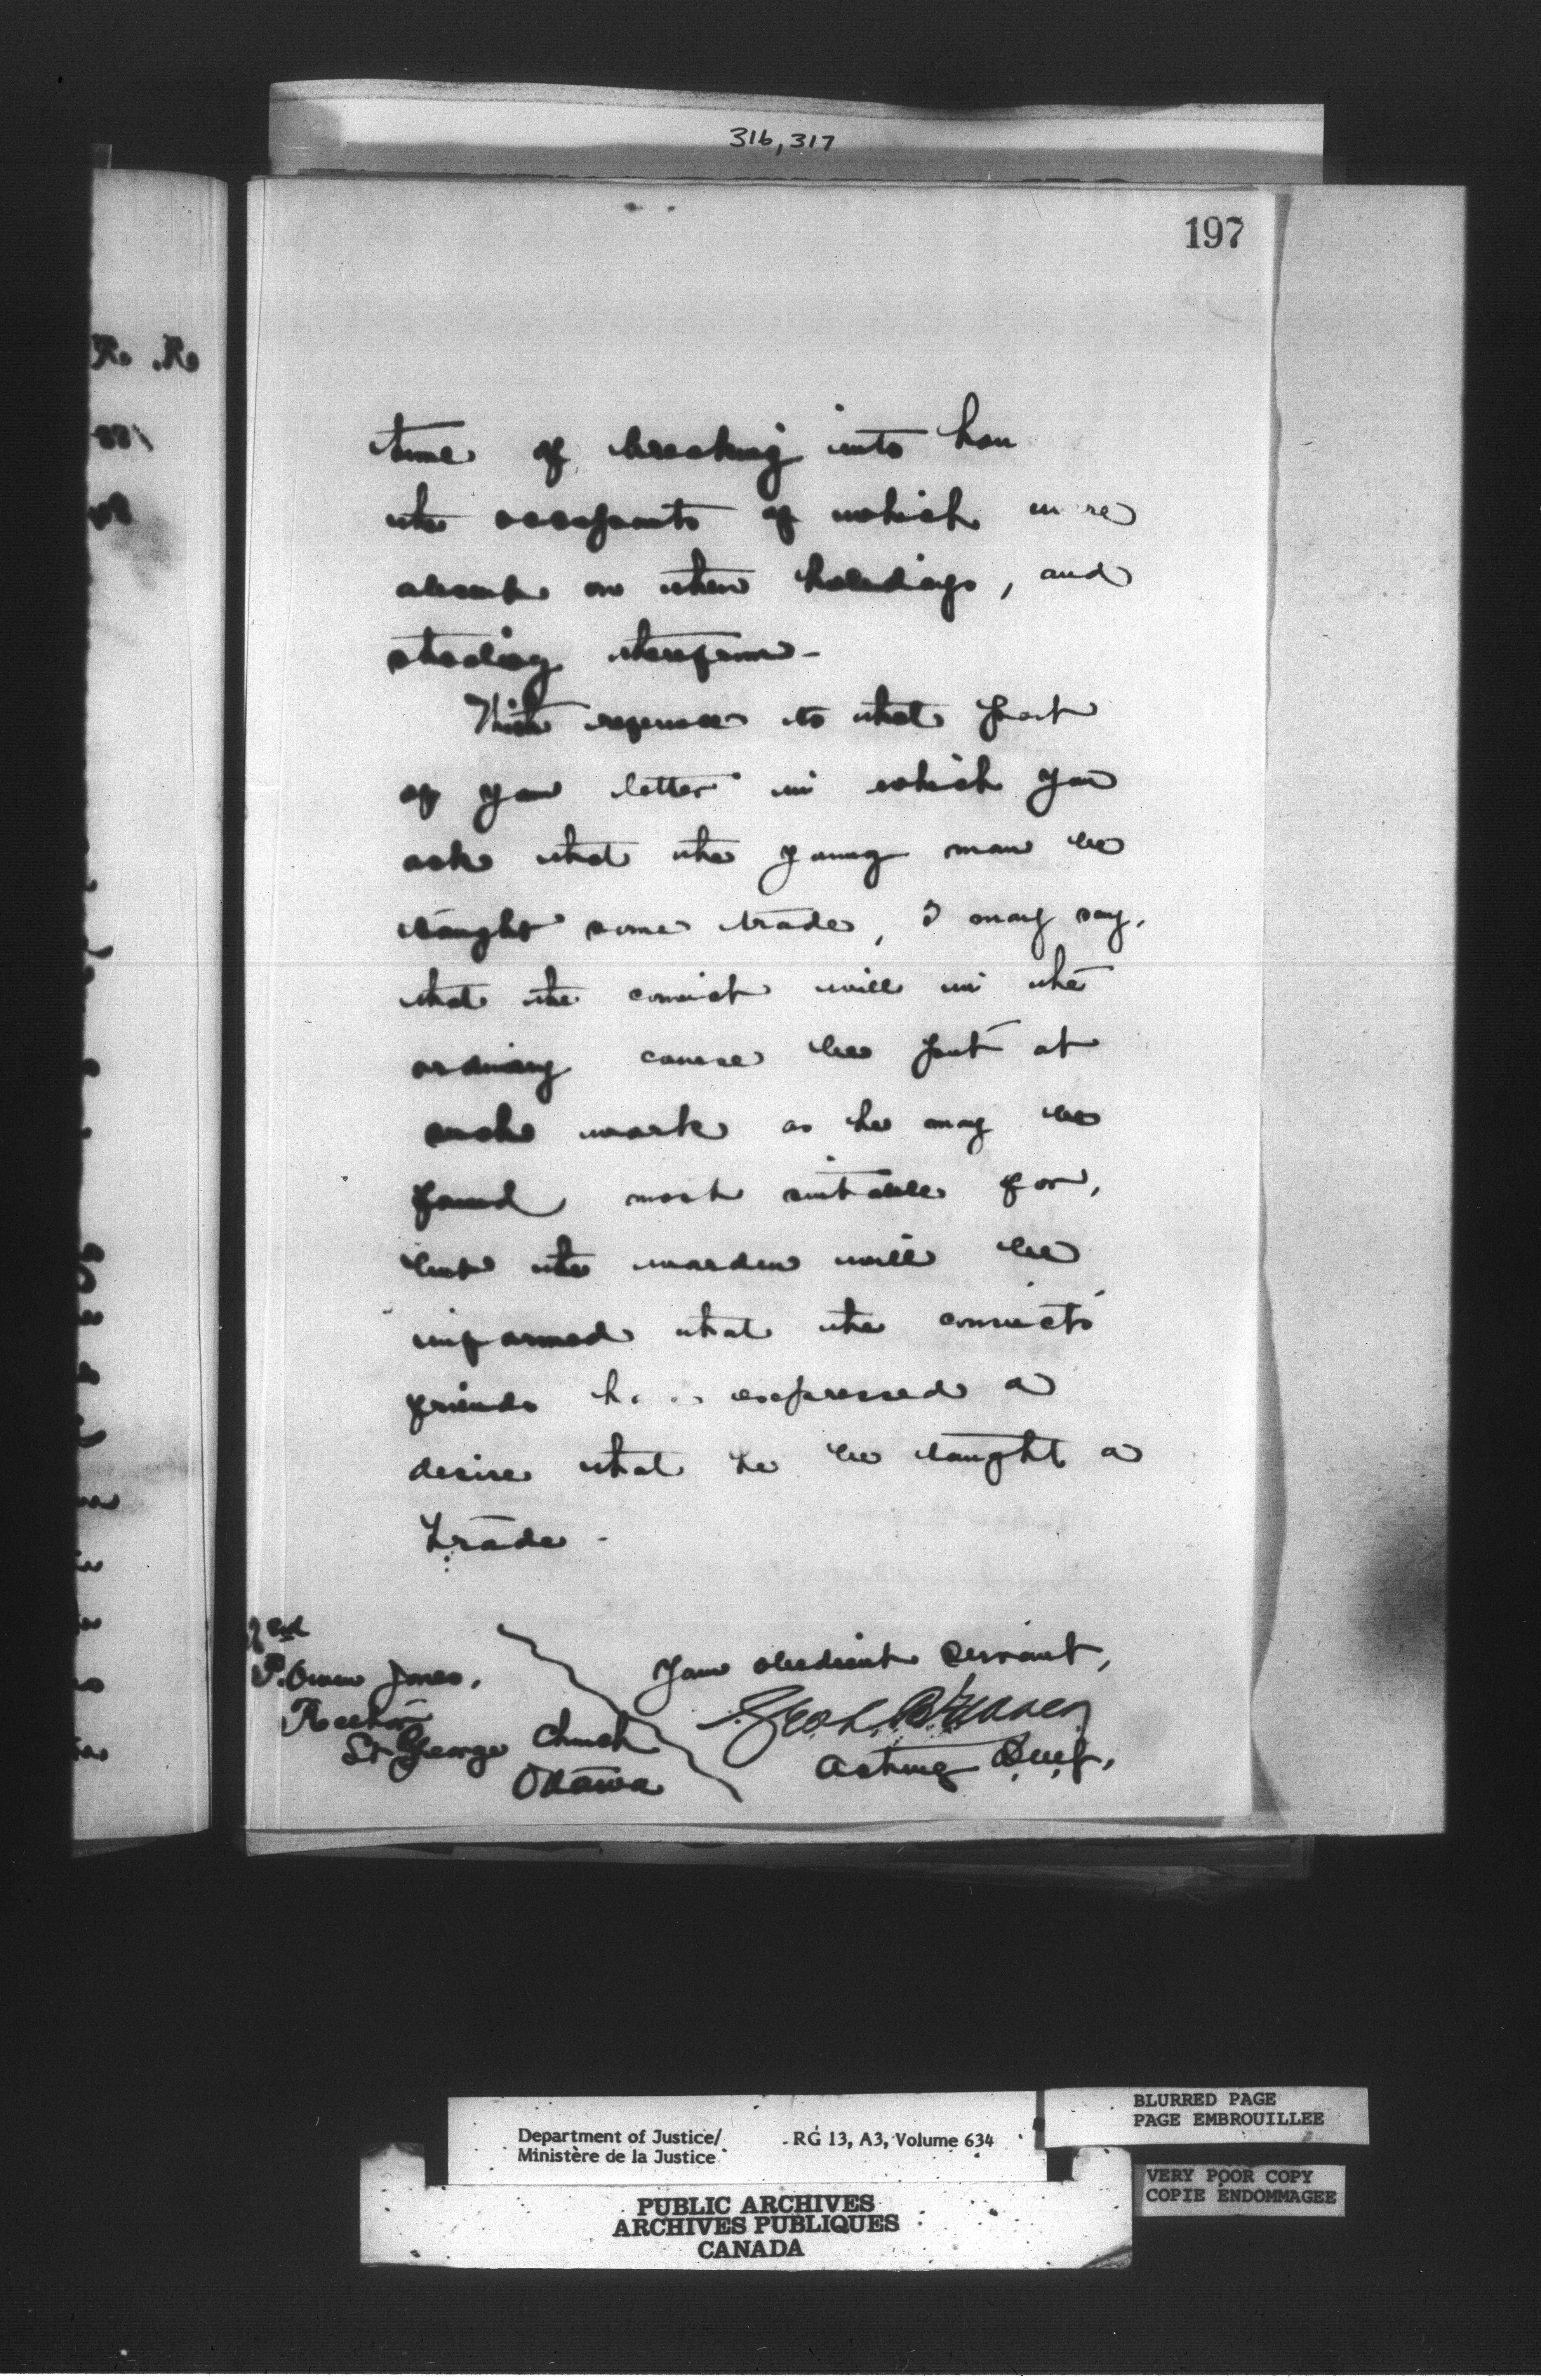 316, 317
197
R. R.
time of breaking into hou
the occupants of which were
absent on their holidays, and
stealing therefrom -
With reference to that part
of your letter in which you
ask that the young man be
taught some trade, I may say,
that the convict will in the
ordinary course be put at
such work as he may be
found most suitable for,
but the warden will be
informed that the convict's
friends expressed a
desire that he be taught a
trade -
Your obedient servant,
Acting
P. Owen Jones,
Rector
St George Church
Ottawa
BLURRED PAGE
PAGE EMBROUILLEE
Department of Justice/ RG 13, A3, Volume 634
Ministère de la Justice
VERY POOR COPY
COPIE ENDOMMAGEE
PUBLIC ARCHIVES
ARCHIVES PUBLIQUES
CANADA